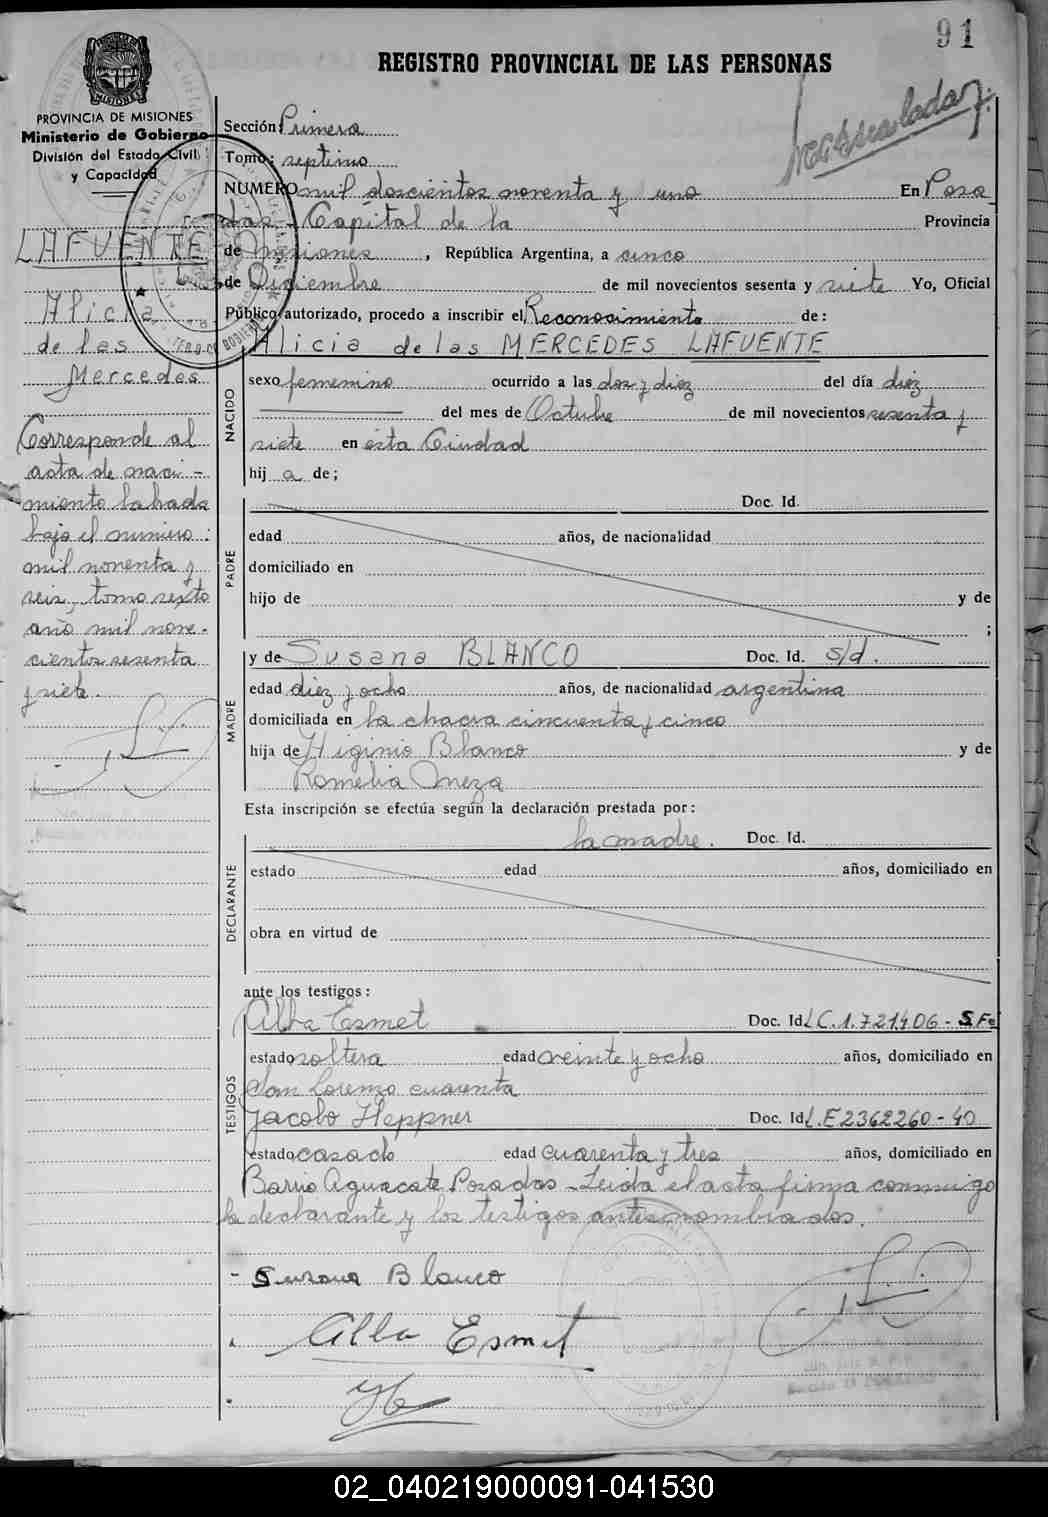 91
REGISTRO PROVINCIAL DE LAS PERSONAS
PROVINCIA DE MISIONES
Ministerio de Gobierno
División del Estado Civil
y Capacidad
Sección: Primera
Tomo: septimo
NUMERO mil doscientos noventa y uno En Posa
das - Capital de la Provincia
de Misiones, República Argentina, a cinco
de Diciembre de mil novecientos sesenta y siete Yo, Oficial
Público autorizado, procedo a inscribir el Reconocimiento de:
Alicia de las MERCEDES LAFUENTE
LAFUENTE
Alicia
de las
Mercedes
Corresponde al
acta de naci-
miento labrada
bajo el numero:
mil noventa y
seis, tomo sexto
año mil nove-
cientos sesenta
y siete.
NACIDO
sexo femenino ocurrido a las dos y diez del día diez
del mes de Octubre de mil novecientos sesenta y
siete en esta Ciudad
hij a de;
PADRE
Doc. Id.
edad años, de nacionalidad
domiciliado en
hijo de y de
;
MADRE
y de Susana BLANCO Doc. Id. s/d.
edad diez y ocho años, de nacionalidad argentina
domiciliada en la chacra cincuenta y cinco
hija de Higinio Blanco y de
Romelia
Esta inscripción se efectúa según la declaración prestada por:
DECLARANTE
la madre. Doc. Id.
estado edad años, domiciliado en
obra en virtud de
ante los testigos:
TESTIGOS
Alba Esmet Doc. Id L.C.1.721.406-S.Fe
estado soltera edad veinte y ocho años, domiciliado en
San Lorenzo cuarenta
Jacobo Heppner Doc. Id L.E 2362260-40
estado casado edad cuarenta y tres años, domiciliado en
Barrio Aguacate Posadas - Leida el acta firma conmigo
la declarante y los testigos antes nombrados.
- Susana Blanco
Alba Esmet
02_040219000091-041530